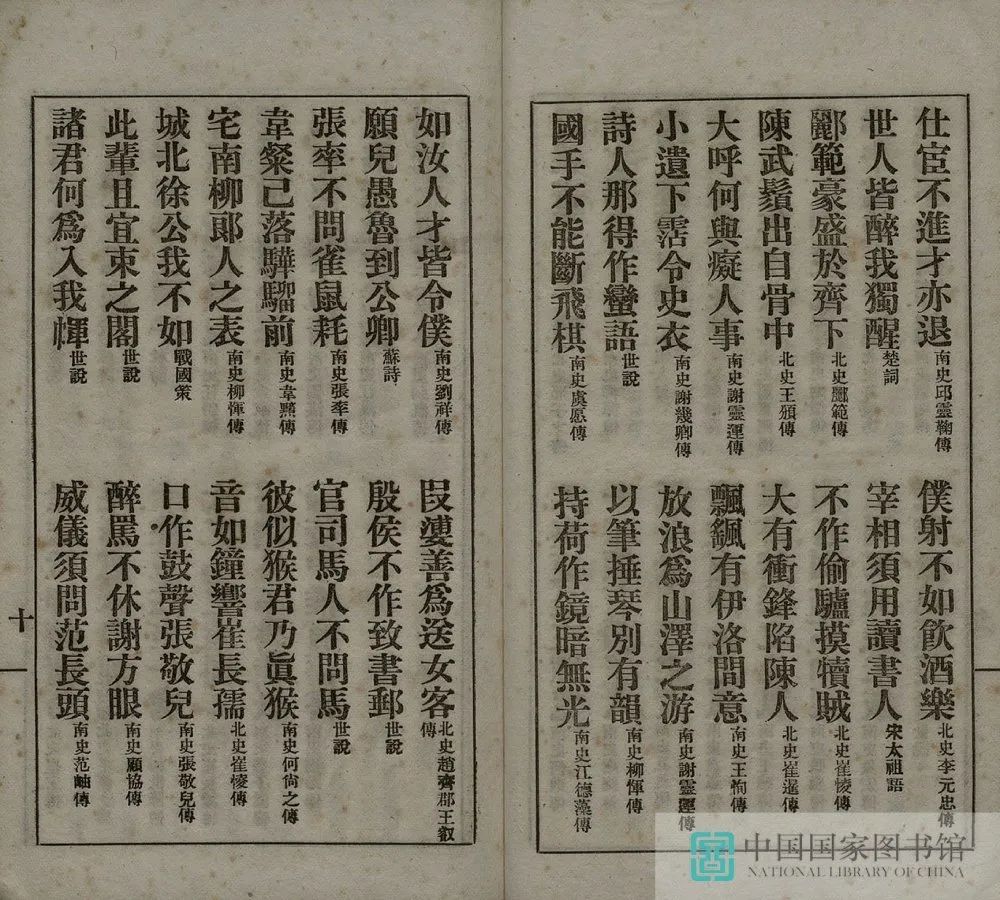 仕宦不進才亦退南史邱靈鞠傳
僕射不如飲酒樂北史李元忠傳
世人皆醉我獨醒楚詞
宰相須用讀書人宋太祖語
酈範豪盛於齊下北史酈範傳
不作偷驢摸犢賊北史崔㥄傳
陳武鬚出自骨中北史王頒傳
大有衝鋒陷陳人北史崔暹傳
大呼何與癡人事南史謝靈運傳
飄颻有伊洛間意南史王恂傳
小遺下霑令史衣南史謝幾卿傳
放浪為山澤之游南史謝靈運傳
詩人那得作蠻語世說
以筆捶琴別有韻南史柳惲傳
國手不能斷飛棋南史虞愿傳
持荷作鏡暗無光南史江德藻傳
如汝人才皆令僕南史劉祥傳
善為送女客北史趙齊郡王叡傳
願兒愚魯到公卿蘇詩
殷侯不作致書郵世說
張率不問雀鼠耗南史張率傳
官司馬人不問馬世說
韋粲已落驊騮前南史韋黯傳
彼似猴君乃眞猴南史何尙之傳
宅南柳郞人之表南史柳惲傳
音如鐘響崔長孺北史崔㥄傳
城北徐公我不如戰國策
口作鼓聲張敬兒南史張敬兒傳
此輩且宜束之閣世說
醉罵不休謝方眼南史顧協傳
諸君何爲入我㡓世說
威儀須問范長頭南史范岫傳
十
中国国家图书馆
NATIONAL LIBRARY OF CHINA